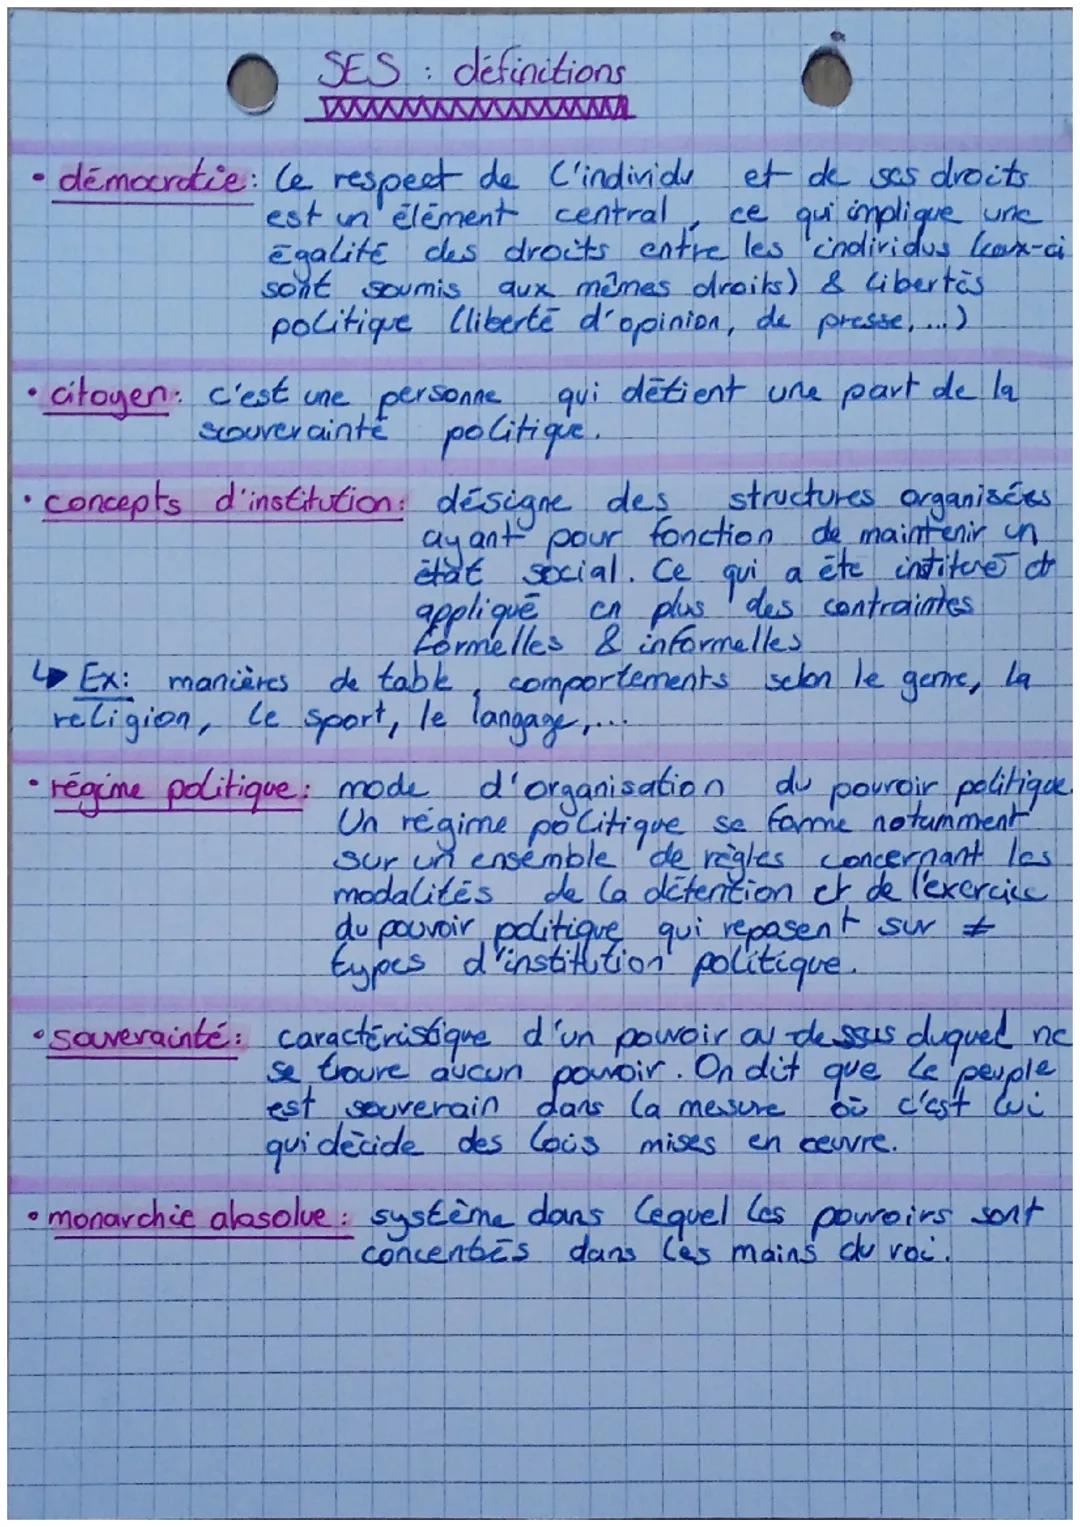 SES : définitions
• démocratie : le respect de l'individu et de ses droits
est un élément central, ce qui implique une
égalité des droits entre les individus (ceux-ci
sont soumis aux mêmes droits) & libertés
politique (liberté d'opinion, de presse, ...)
• citoyen : c'est une personne qui détient une part de la
scouverainté politique.
• concepts d'institution : désigne des structures organisées
ayant pour fonction de maintenir un
état social. Ce qui a été institué et
appliqué en plus des contraintes
formelles & informelles
↳ Ex : manières de table, comportements selon le genre, la
religion, le sport, le langage, ...
• régime politique : mode d'organisation du pouvoir politique.
Un régime politique se forme notamment
sur un ensemble de règles concernant les
modalités de la détention et de l'exercice
du pouvoir politique qui reposent sur ≠
types d'institution politique.
• souverainté : caractéristique d'un pouvoir au-dessus duquel ne
se trouve aucun pouvoir. On dit que le peuple
est souverain dans la mesure où c'est lui
qui décide des lois mises en œuvre.
• monarchie abasolue : système dans lequel les pouvoirs sont
concentrés dans les mains du roi.